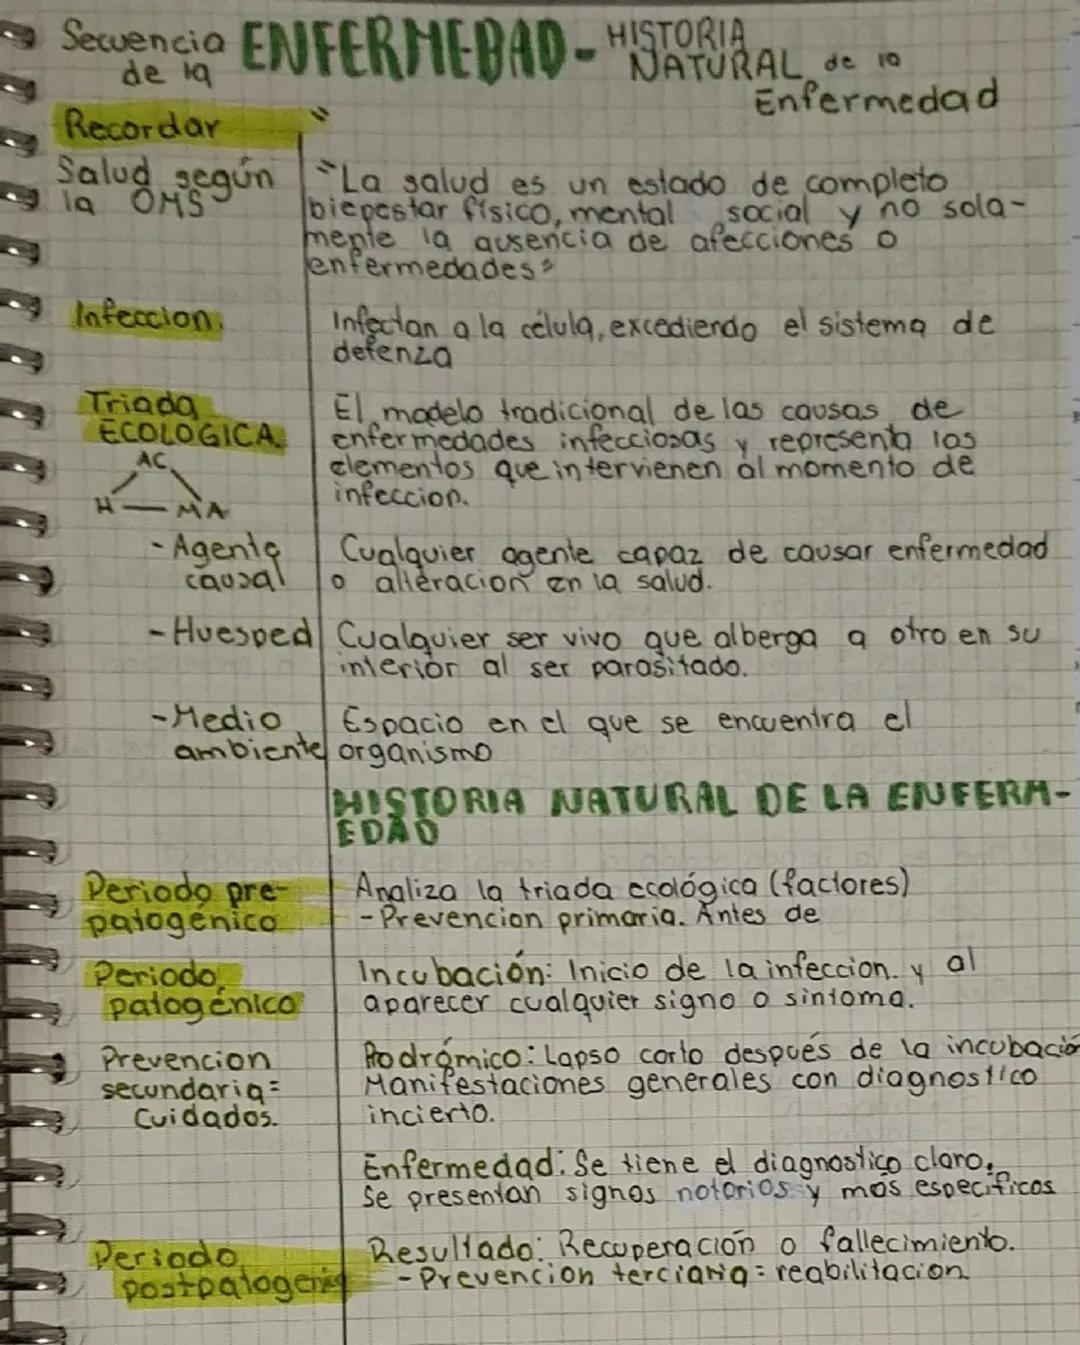 Secuencia de la ENFERMEDAD - HISTORIA NATURAL de la Enfermedad
Recordar
Salud según la OMS
"La salud es un estado de completo
bienestar físico, mental social y no sola-
mente la ausencia de afecciones o
enfermedades"
Infeccion.
Infectan a la célula, excediendo el sistema de
defenza
Triada
ECOLOGICA
AC
H — MA
El modelo tradicional de las causas de
enfermedades infecciosas y representa los
elementos que intervienen al momento de
infeccion.
- Agente
causal
Cualquier agente capaz de causar enfermedad
o alteracion en la salud.
- Huesped
Cualquier ser vivo que alberga a otro en su
interior al ser parasitado.
- Medio
ambiente
Espacio en el que se encuentra el
organismo
HISTORIA NATURAL DE LA ENFERM-
EDAD
Periodo pre-
patogenico
Analiza la triada ecológica (factores)
- Prevencion primaria. Antes de
Periodo
patogénico
Incubación: Inicio de la infeccion. y al
aparecer cualquier signo o sintoma.
Prevencion
secundaria =
Cuidados.
Podrómico: Lapso corto después de la incubación
Manifestaciones generales con diagnostico
incierto.
Enfermedad: Se tiene el diagnostico claro.
Se presentan signos notorios y mas especificos
Periodo
postpatogenico
Resultado: Recuperación o fallecimiento.
- Prevencion terciaria = reabilitacion